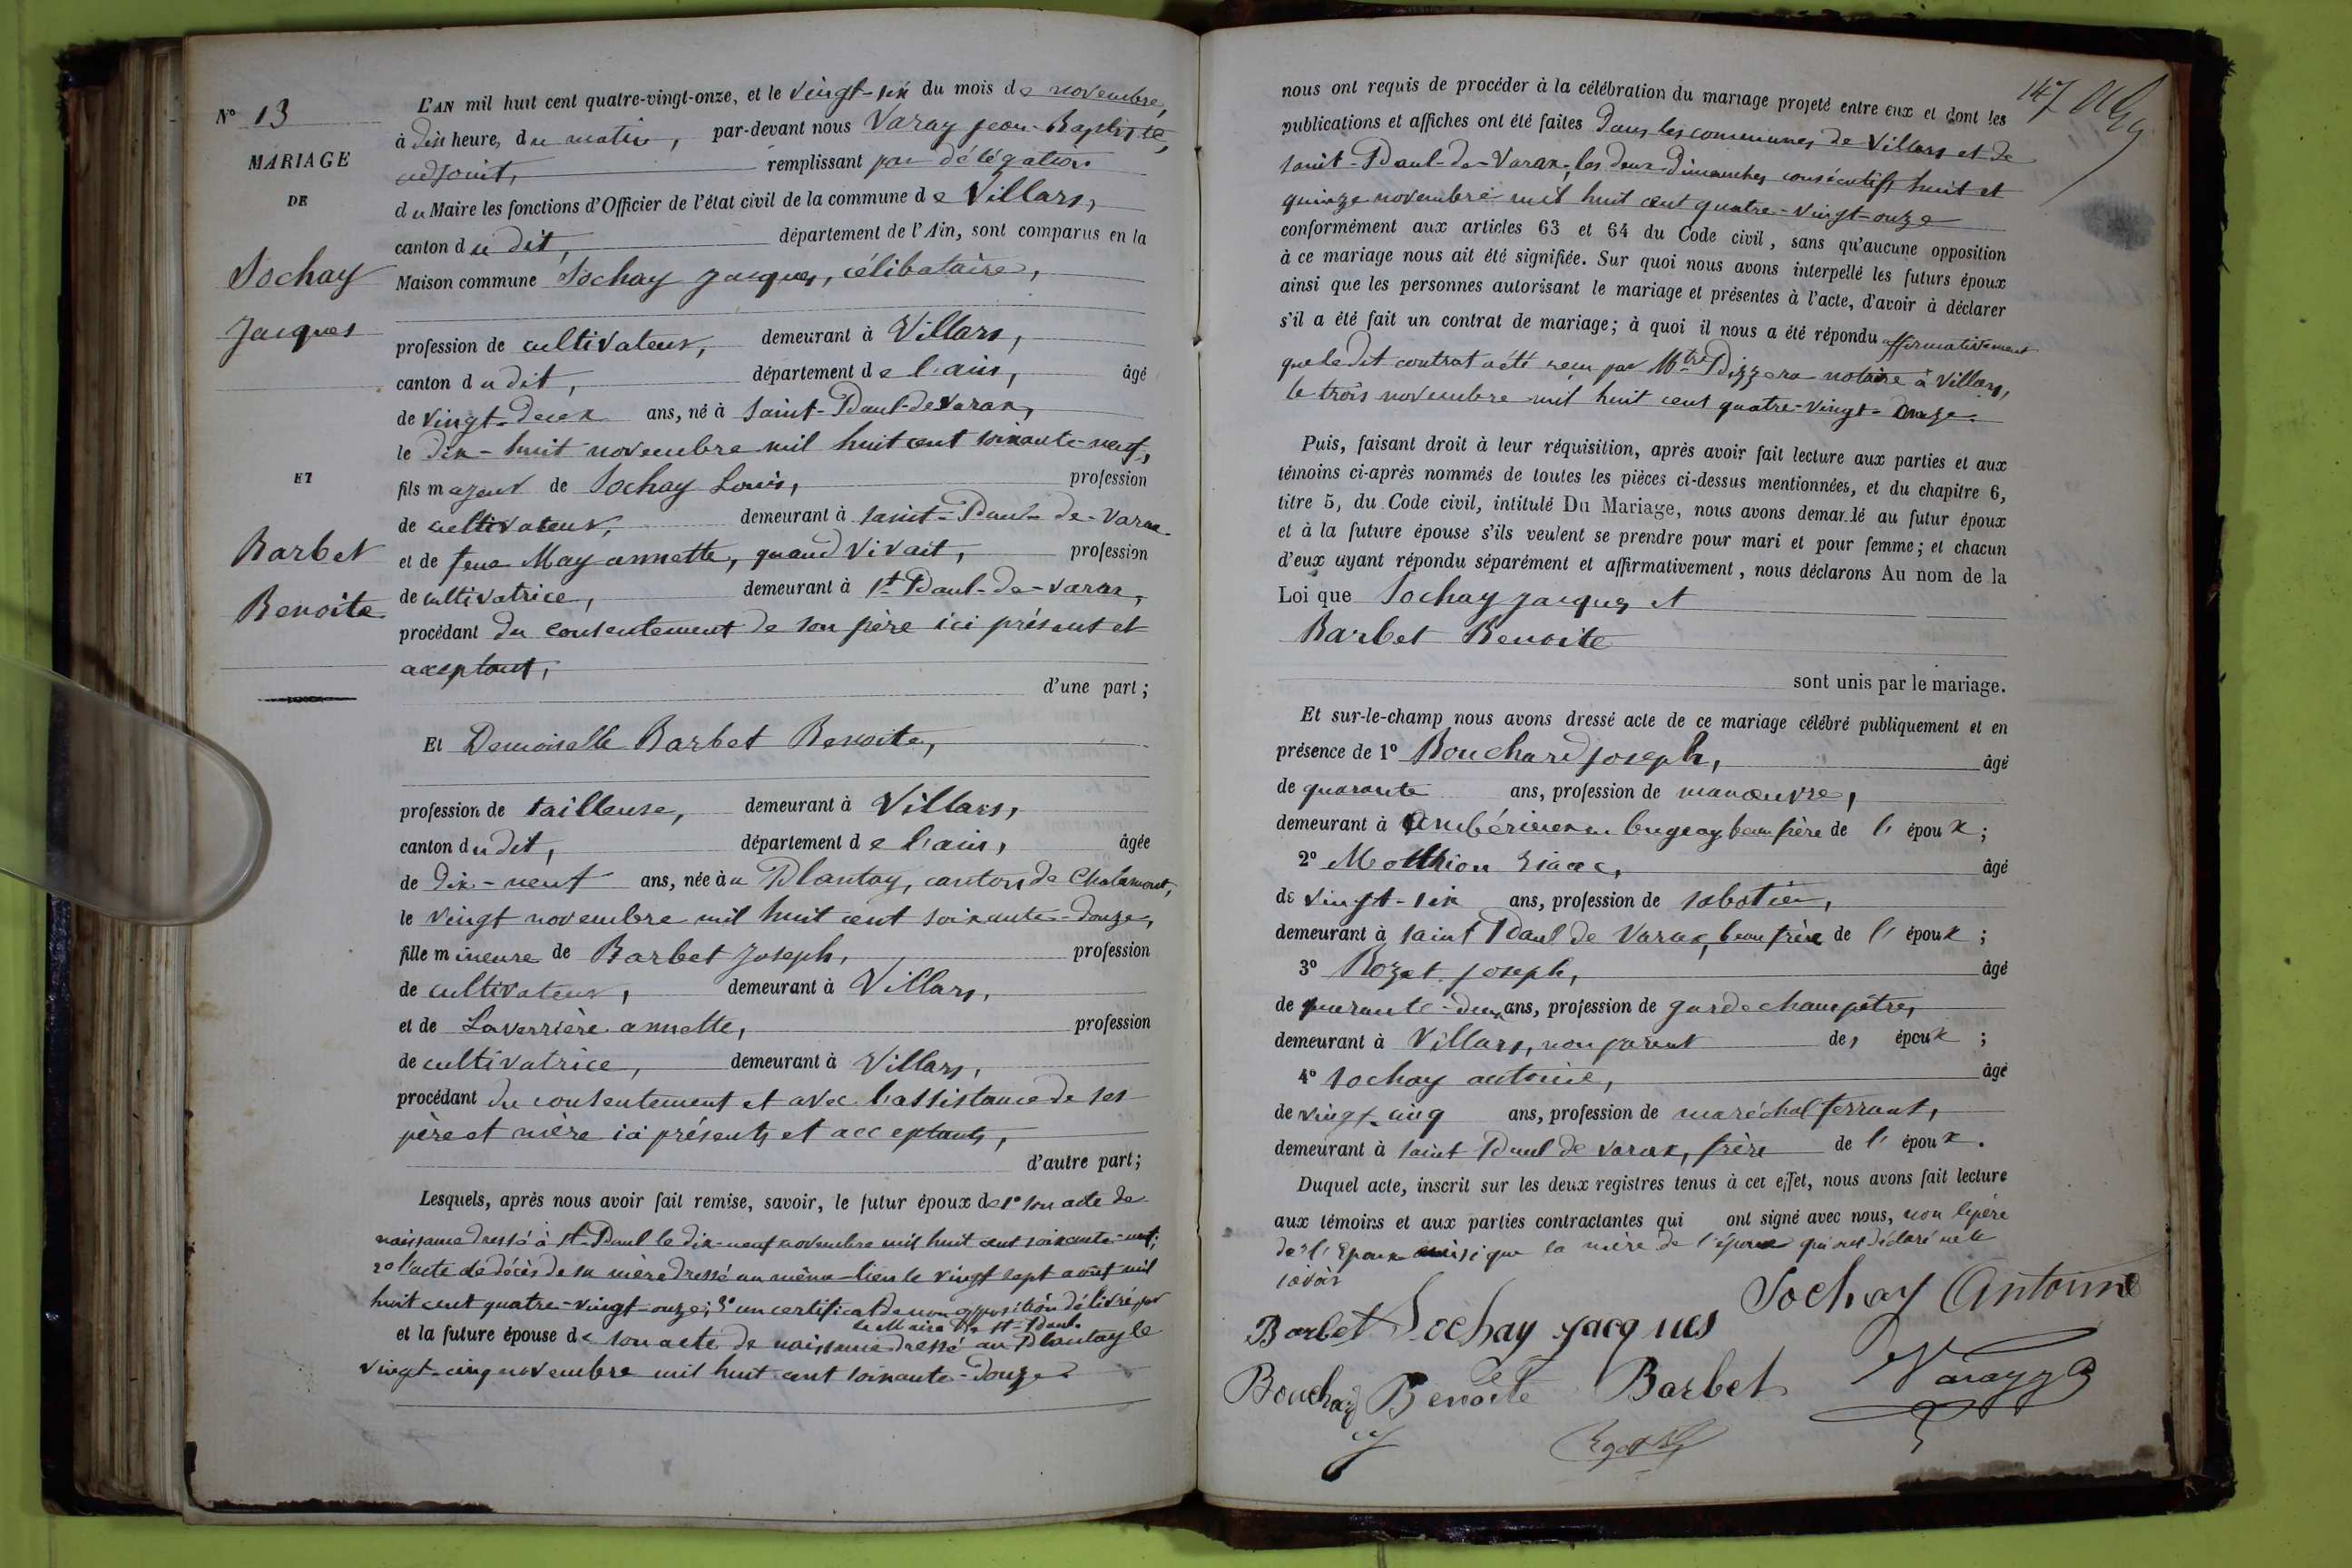 N° 13
MARIAGE
DE
Sochay
Jacques
ET
Barbet
Benoite
L'AN mil huit cent quatre-vingt-onze, et le vingt-six du mois de novembre,
à dix heures, du matin, par-devant nous Varay Jean-Baptiste,
adjoint, remplissant par délégation
du Maire les fonctions d'Officier de l'état civil de la commune de Villars,
canton du dit, département de l'Ain, sont comparus en la
Maison commune Sochay Jacques, célibataire,
profession de cultivateur, demeurant à Villars,
canton du dit, département de l'ain, âgé
de vingt-deux ans, né à Saint-Paul-de Varax,
le dix-huit novembre mil huit cent soixante-neuf,
fils majeur de Sochay Louis, profession
de cultivateur, demeurant à saint-Paul-de-Varax
et de feue May annette, quand vivait, profession
de cultivatrice, demeurant à St-Paul-de-Varax,
procédant du consentement de son père ici présent et
acceptant,
d'une part;
Et Demoiselle Barbet Benoite,
profession de tailleuse, demeurant à Villars,
canton du dit, département de l'ain, âgée
de dix-neuf ans, née au Plantay, canton de Chalamont,
le vingt novembre mil huit cent soixante-douze,
fille mineure de Barbet Joseph, profession
de cultivateur, demeurant à Villars,
et de Laverrière annette, profession
de cultivatrice, demeurant à Villars,
procédant du consentement et avec l'assistance de ses
père et mère ici présents et acceptants,
d'autre part;
Lesquels, après nous avoir fait remise, savoir, le futur époux de 1° son acte de
naissance dressé à St-Paul le dix-neuf novembre mil huit cent soixante-neuf;
2° l'acte de décès de sa mère dressé au même lieu le vingt sept août mil
huit cent quatre-vingt-onze; 3° un certificat de non opposition délivré par
le Maire de St-Paul.
et la future épouse de son acte de naissance dressé au Plantay le
vingt-cinq novembre mil huit cent soixante-douze
147
nous ont requis de procéder à la célébration du mariage projeté entre eux et dont les
publications et affiches ont été faites dans les communes de Villars et de
saint-Paul-de-Varax, les deux dimanches consécutifs huit et
quinze novembre mil huit cent quatre-vingt-onze
conformément aux articles 63 et 64 du Code civil, sans qu'aucune opposition
à ce mariage nous ait été signifiée. Sur quoi nous avons interpellé les futurs époux
ainsi que les personnes autorisant le mariage et présentes à l'acte, d'avoir à déclarer
s'il a été fait un contrat de mariage; à quoi il nous a été répondu affirmativement
que le dit contrat a été reçu par Mtre Pizzera notaire à Villars,
le trois novembre mil huit cent quatre-vingt-onze.
Puis, faisant droit à leur réquisition, après avoir fait lecture aux parties et aux
témoins ci-après nommés de toutes les pièces ci-dessus mentionnées, et du chapitre 6,
titre 5, du Code civil, intitulé Du Mariage, nous avons demandé au futur époux
et à la future épouse s'ils veulent se prendre pour mari et pour femme; et chacun
d'eux ayant répondu séparément et affirmativement, nous déclarons Au nom de la
Loi que Sochay Jacques et
Barbet Benoite
sont unis par le mariage.
Et sur-le-champ nous avons dressé acte de ce mariage célébré publiquement et en
présence de 1° Bouchard Joseph, âgé
de quarante ans, profession de manœuvre,
demeurant à Ambérieux en bugey, beau frère de l'époux;
2° Motthion Isaac, âgé
de vingt-six ans, profession de sabotier,
demeurant à saint Paul de Varax, beau frère de l'époux;
3° Rozet Joseph, âgé
de quarante-deux ans, profession de garde champêtre,
demeurant à Villars, non parent des époux;
4° Sochay antoine, âgé
de vingt-cinq ans, profession de maréchal ferrant,
demeurant à saint Paul de Varax, frère de l'époux.
Duquel acte, inscrit sur les deux registres tenus à cet effet, nous avons fait lecture
aux témoins et aux parties contractantes qui ont signé avec nous, non le père
de l'époux ainsi que la mère de l'épouse qui ont déclaré ne le
savoir
Barbet Sochay Jacques Sochay Antoine
Bouchard J Benoite Barbet Varay